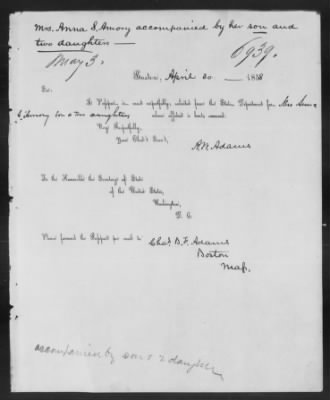 Mrs. Anna S. Amory accompanied by her son and
two daughters —
May 3. 6939.
Boston, April 30 — 1888
Sir:
A Passport is most respectfully solicited from the State Department for Mrs Anna
S. Amory son & two daughters whose affidavit is hereto annexed.
Very Respectfully,
Your Obed't Serv't,
A. W. Adams
To the Honorable the Secretary of State
of the United States,
Washington,
D. C.
Please forward the Passport per mail to Chas. B. F. Adams
Boston
Mass.
accompanied by son & 2 daughters